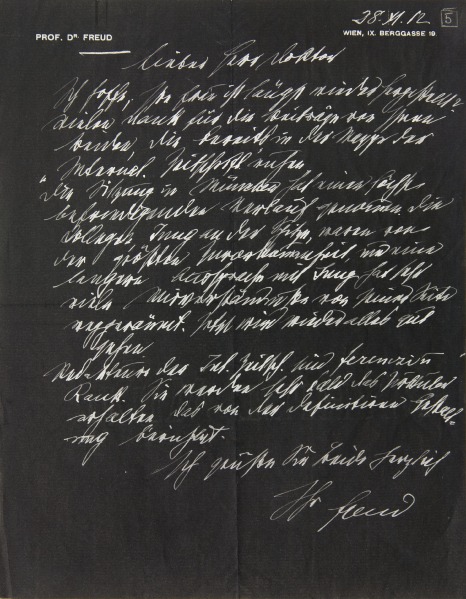 28. XI. 12
5
PROF. DR. FREUD
WIEN, IX. BERGGASSE 19.
Lieber Herr Doktor
Ich hoffe, Ihre Frau ist längst wieder hergestellt.
Vielen Dank für die Beiträge von Ihnen
beiden, die bereits in der Mappe der
Internat. Zeitschrift ruhen.
Die Sitzung in München hat einen höchst
befriedigenden Verlauf genommen. Die
Collegen, Jung an der Spitze, waren von
der größten und eine
längere Aussprache mit Jung hat sehr
viele Missverständnisse von seiner Seite
weggeräumt. Jetzt wird wieder alles gut
gehen.
Redakteure der Int. Zeitsch. sind Ferenczi u
Rank. Sie werden sehr bald das Zirkular
erhalten das von der definitiven Gestal-
tung berichtet.
Ich grüße Sie beide herzlich
Ihr Freud